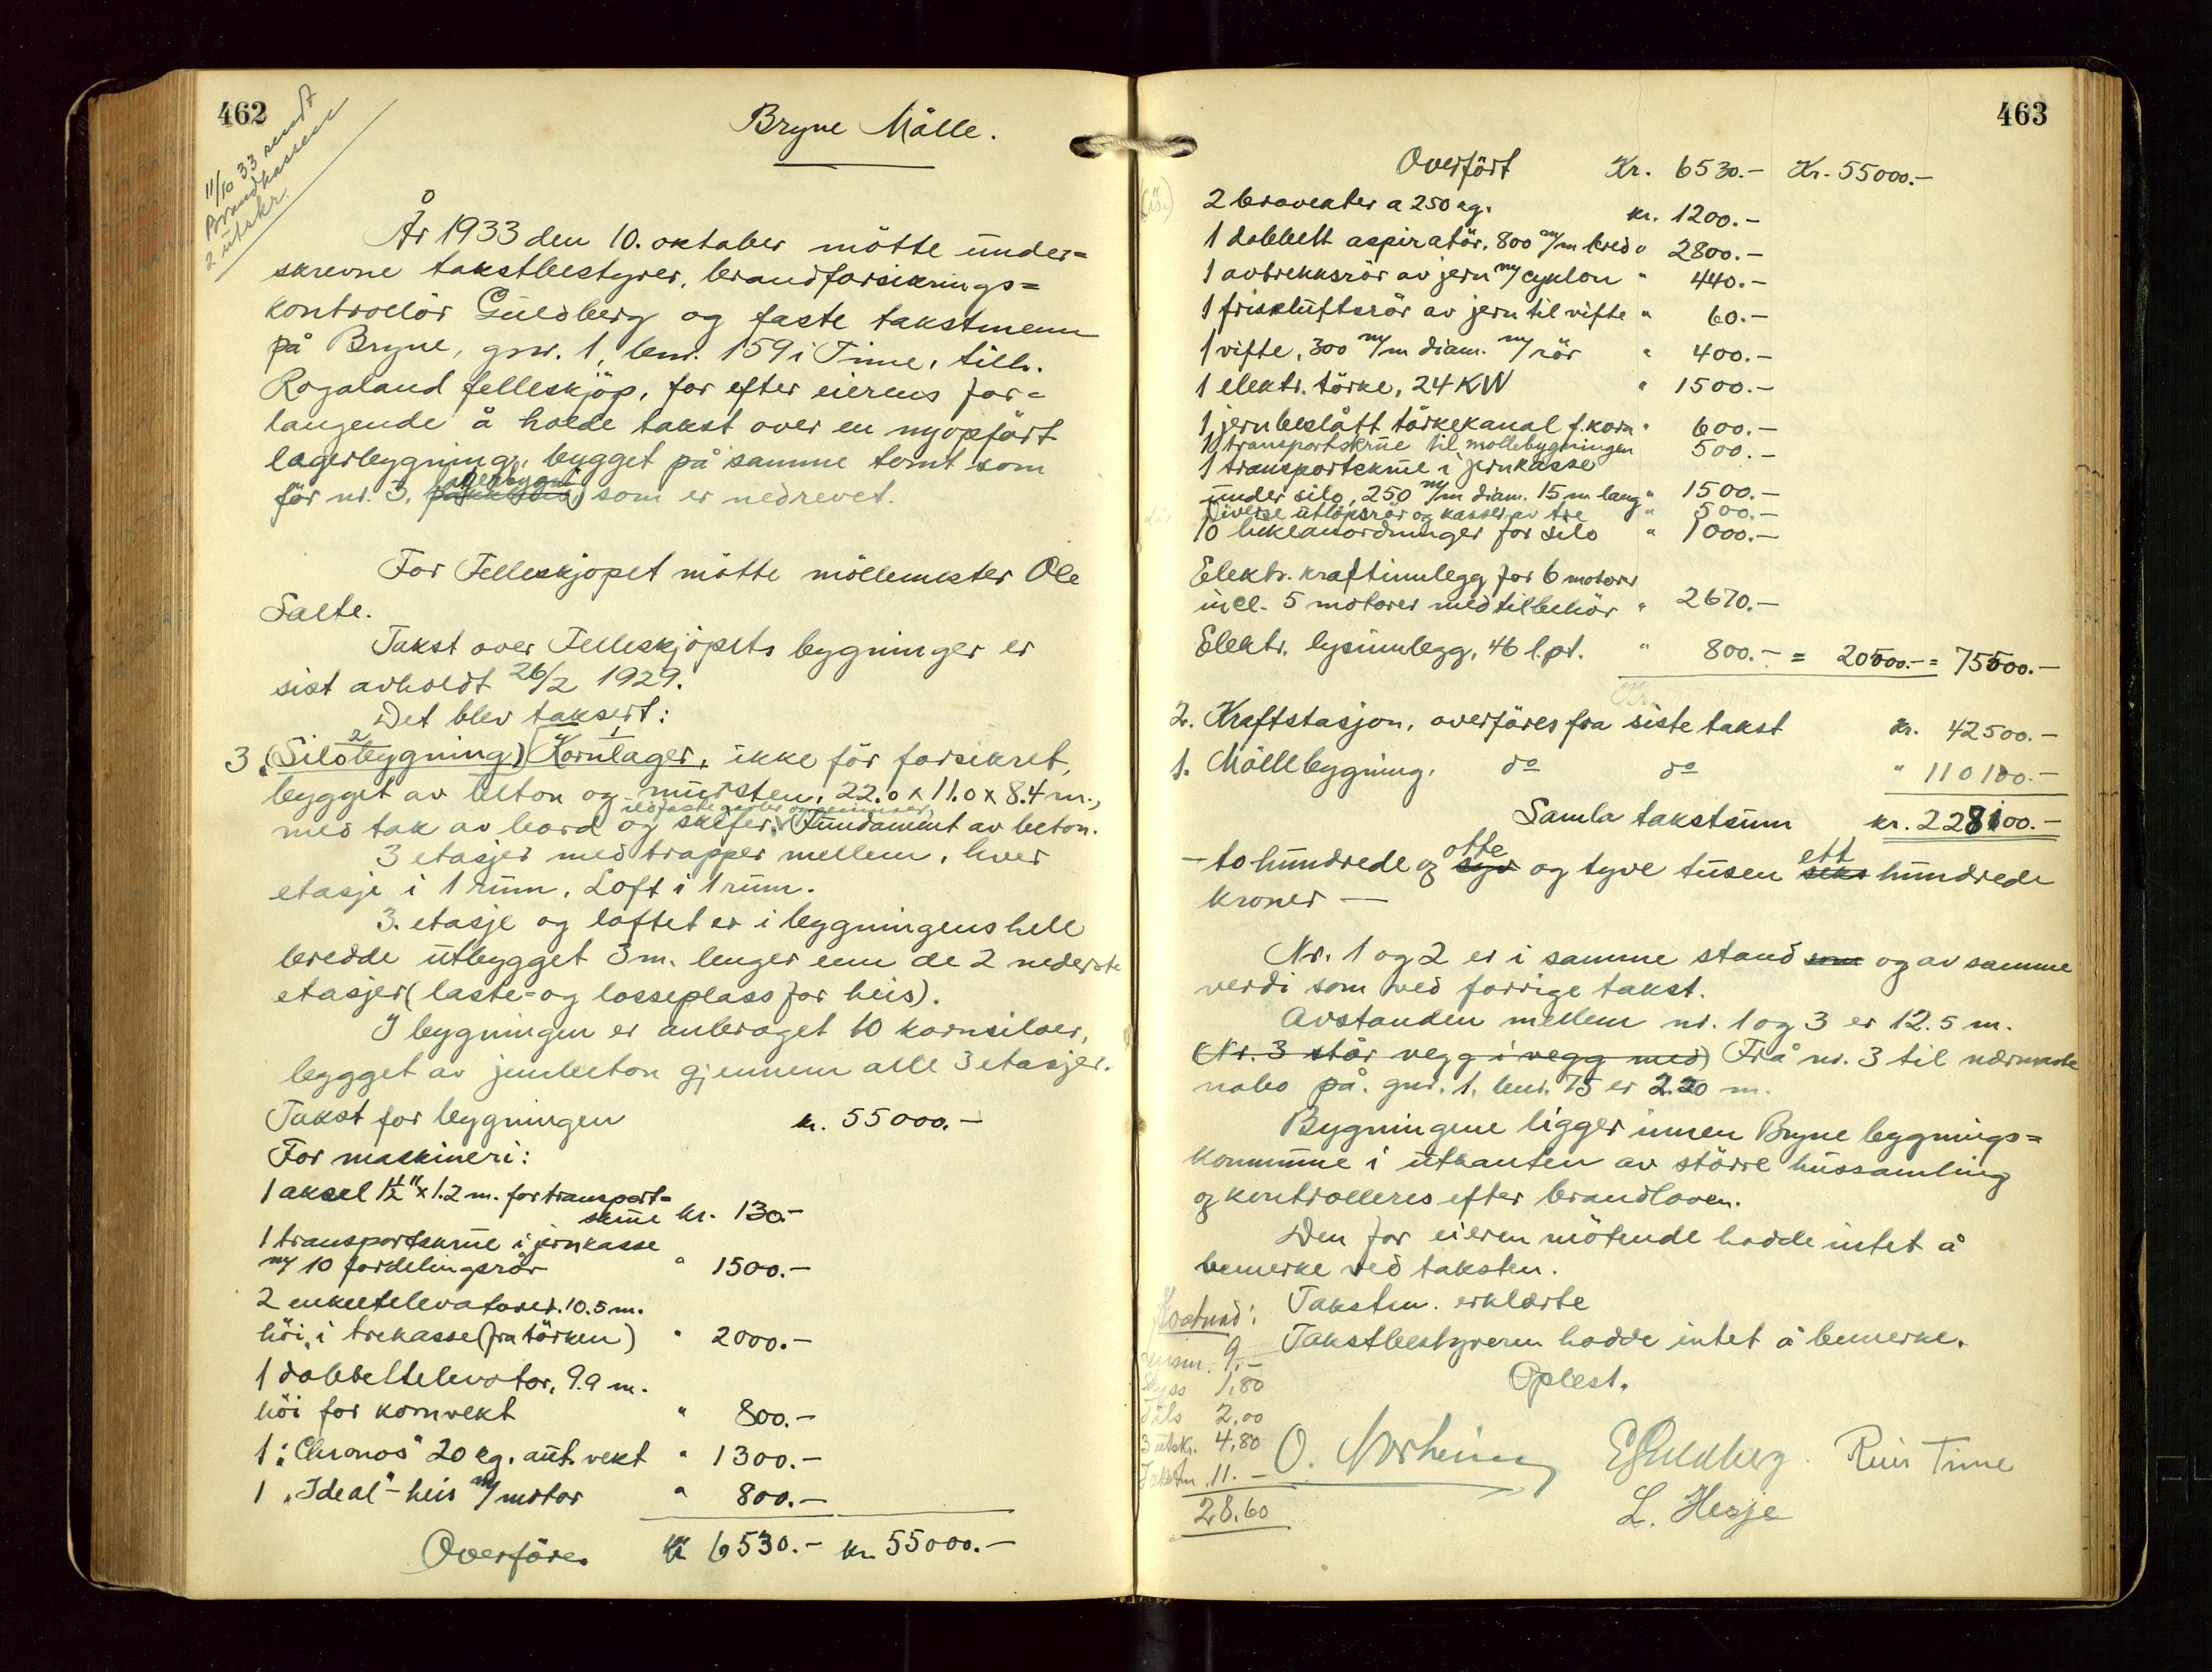 462
11/10 33 sendt
Brandkassen
2 utskr.
Bryne Mölle.
År 1933 den 10. oktober mötte under=
skrevne takstbestyrer, brandforsikrings=
kontrollör Guldberg og faste takstmenn
på Bryne, gnr. 1, bnr. 159 i Time, tilh.
Rogaland felleskjöp, for efter eierens for=
langende å holde takst over en nyopfört
lagerbygning, bygget på samme tomt som
för nr. 3, lagerbygn. som er nedrevet.
For Felleskjöpet mötte möllemester Ole
Salte.
Takst over Felleskjöpets bygninger er
sist avholdt 26/2 1929.
Det blev taksert:
3. (Silobygning) 2 Kornlager, 1 ikke för forsikret,
bygget av beton og mursten, 22.0 x 11.0 x 8.4 m.,
ildfaste gavler og gesimser
med tak av bord og skifer. Fundament av beton.
3 etasjer med trapper mellem, hver
etasje i 1 rum. Loft i 1 rum.
3. etasje og loftet er i bygningens hele
bredde utbygget 3 m. lenger enn de 2 nederste
etasjer (laste= og losseplass for heis).
I bygningen er anbraget 10 kornsiloer,
bygget av jernbeton gjennem alle 3 etasjer.
Takst for bygningen kr. 55000.-
For maskineri:
1 aksel 1½" x 1.2 m. for transport=
skrue kr. 130.-
1 transportskrue i jernkasse
m/ 10 fordelingsrör " 1500.-
2 enkeltelevatorer. 10.5 m.
höi, i trekasse (fra törken) " 2000.-
1 dobbeltelevator, 9.9 m.
höi for kornvekt " 800.-
1 "Chronos" 20 kg. aut. vekt " 1300.-
1 "Ideal"-heis m/ motor " 800.-
Overföres kr 6530.- kr. 55000.-
463
Overfört Kr. 6530.- Kr. 55000.-
2 brovekter a 250 kg. kr. 1200.-
1 dobbelt aspiratör, 800 m/m bred " 2800.-
1 avtrekksrör av jern m/ cyklon " 440.-
1 friskluftsrör av jern til vifte " 60.-
1 vifte, 300 m/m diam. m/ rör " 400.-
1 elektr. törke, 24 KW " 1500.-
1 jernbeslått törkekanal f. korn " 600.-
1 transportskrue til möllebygningen 500.-
1 transportskrue i jernkasse
under silo, 250 m/m diam. 15 m. lang " 1500.-
Diverse utlöpsrör og kasser av tre " 500.-
10 lukeanordninger for silo " 1000.-
Elektr. kraftinnlegg for 6 motorer
incl. 5 motorer med tilbehör " 2670.-
Elektr. lysinnlegg, 46 l.pt. " 800.- = 20500.- = 75500.-
2. Kraftstasjon, overföres fra siste takst kr. 42500.-
1. Möllebygning, do do " 110100.-
Samla takstsum kr. 228100.-
- to hundrede og syv otte og tyve tusen seks ett hundrede
kroner -
Nr. 1 og 2 er i samme stand som og av samme
verdi som ved forrige takst.
Avstanden mellem nr. 1 og 3 er 12.5 m.
(Nr. 3 står vegg i vegg med) Frå nr. 3 til nærmaste
nabo på gnr. 1, bnr. 75 er 2.20 m.
Bygningene ligger innen Bryne bygnings=
kommune i utkanten av större hussamling
og kontrolleres efter brandloven.
Den for eieren mötende hadde intet å
bemerke ved taksten.
Takstm. erklærte
Takstbestyreren hadde intet å bemerke.
Oplest.
Kostnad:
Lensm. 9.-
Skyss 1,80
2,00
3 utskr. 4,80
Takstm. 11.-
28.60
O. Norheim EGuldberg. Reier Time
L. Hesje